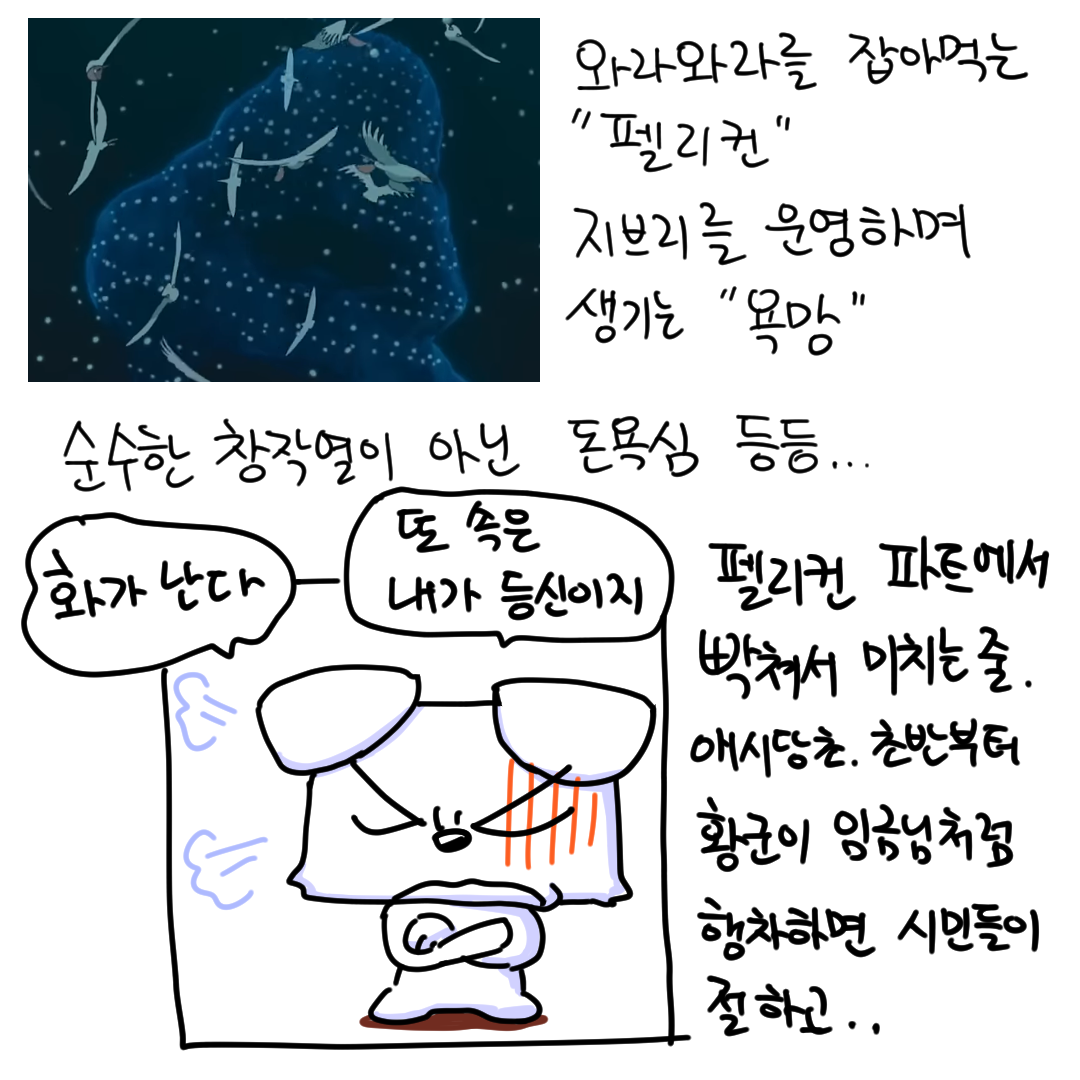 와라와라를 잡아먹는
"펠리컨"
지브리를 운영하며
생기는 "욕망"
순수한 창작열이 아닌 돈욕심 등등...
화가 난다
또 속은
내가 등신이지
펠리컨 파트에서
빡쳐서 미치는줄.
애시당초. 초반부터
황군이 임금님처럼
행차하면 시민들이
절하고..